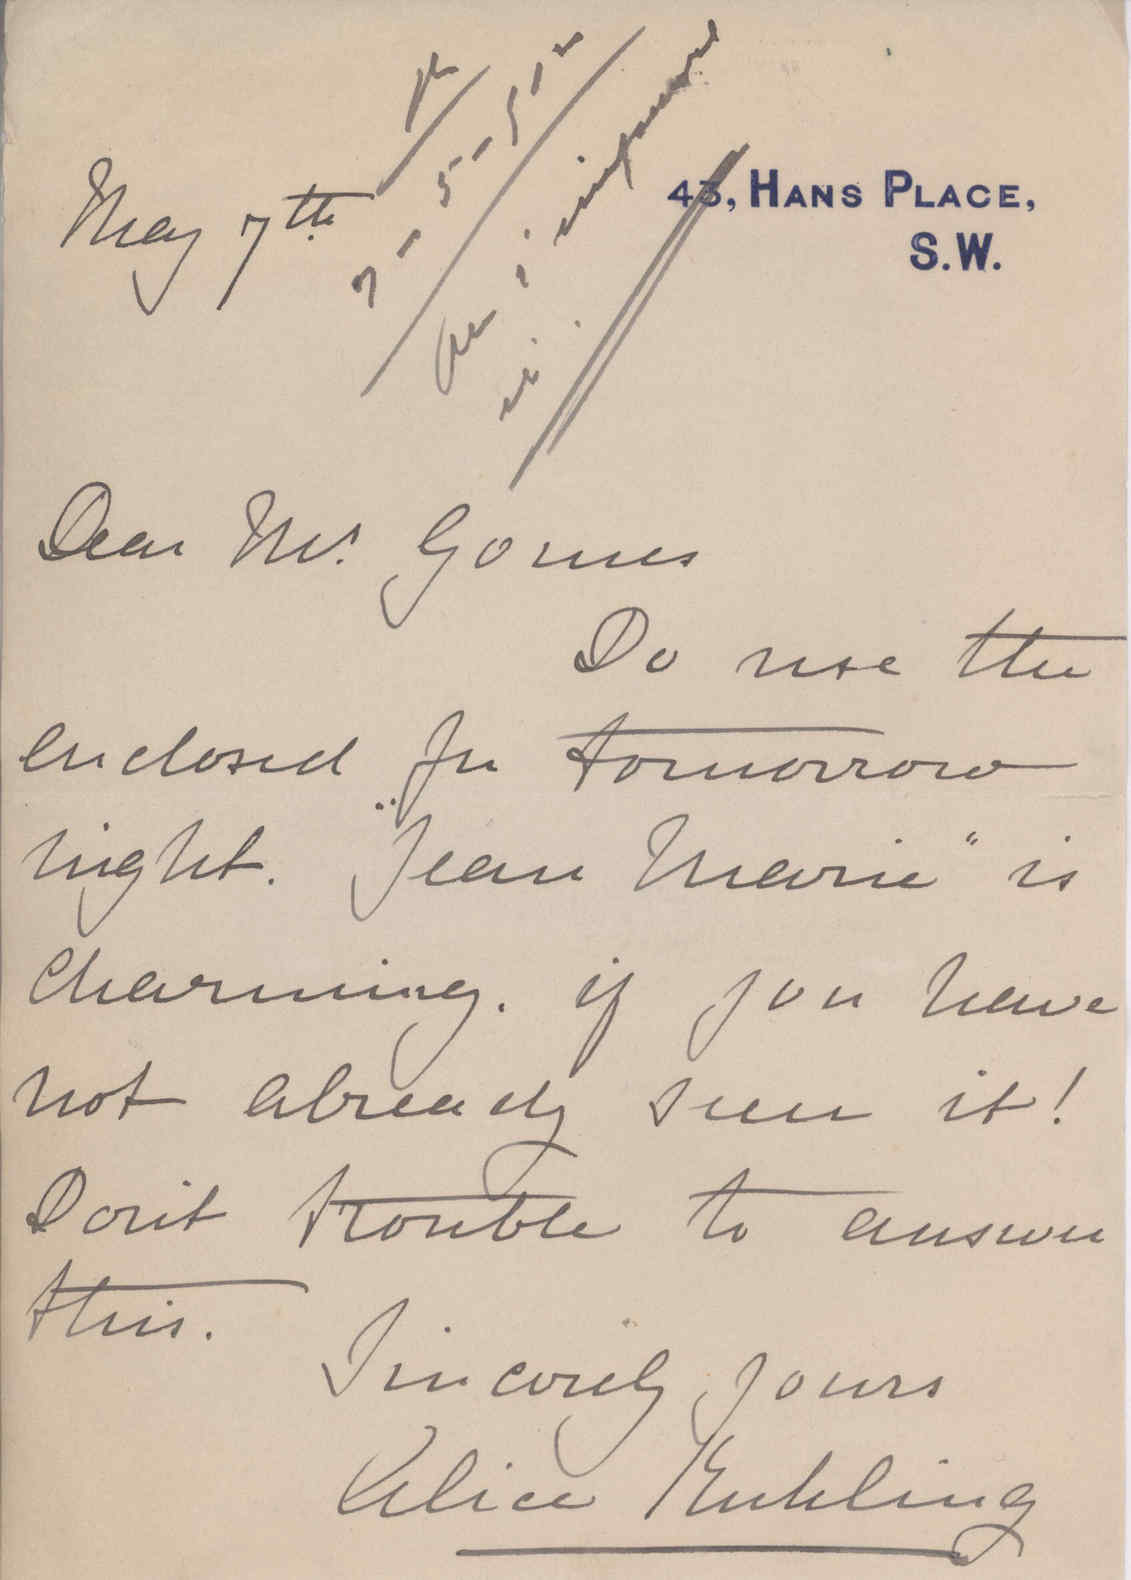 May 7th
43, HANS PLACE,
S.W.
7-5-51
Dear Mr. Gomes
Do use the
enclosed for tomorrow
night. "Jean Marie" is
charming. if you have
not already seen it!
Don't trouble to answer
this.
Sincerely yours
Alice